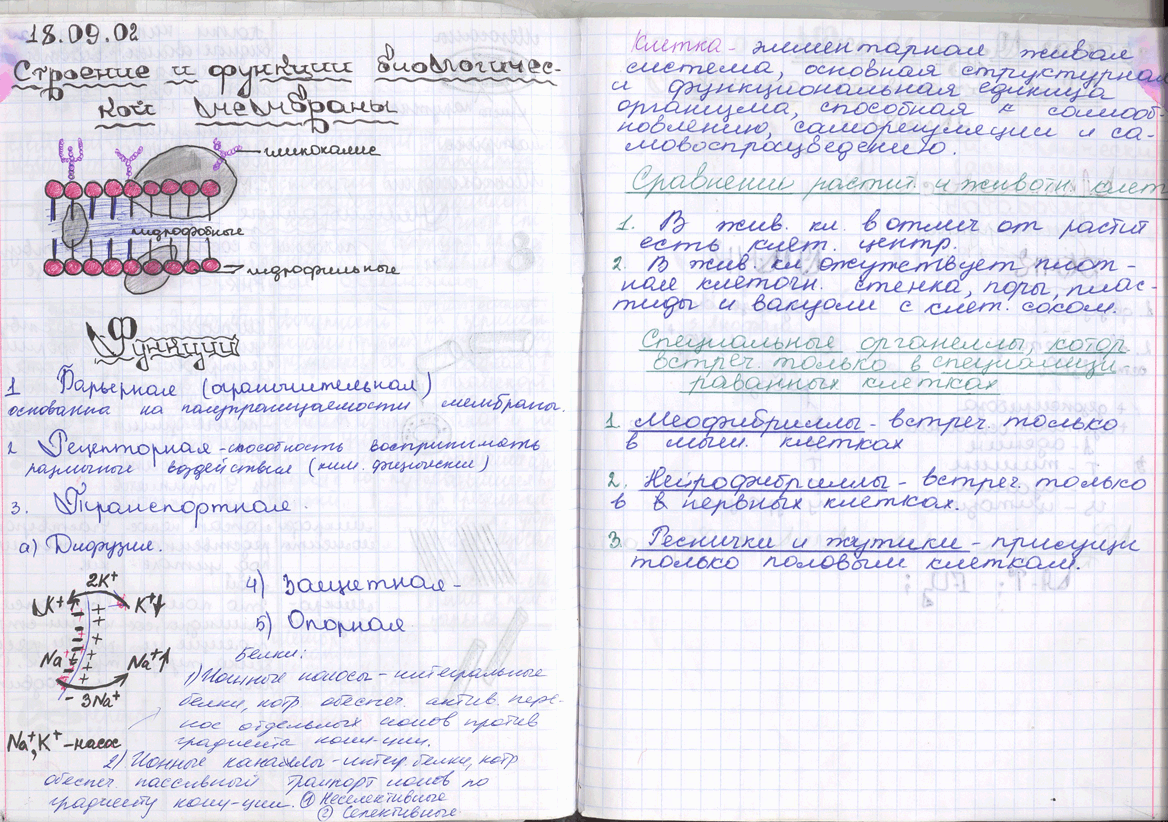 18.09.02
Строение и функции биологичес-
кой мембраны
гликокаликс
гидрофобные
гидрофильные
Функции
1 Барьерная (ограничительная)
основанна на полупроницаемости мембраны.
2 Рецепторная - способность воспринимать
различные воздействия (хим. физически)
3. Транспортная.
а) Дифузия.
2K⁺
K⁺
K⁺
Na
Na⁺
- 3Na⁺
Na⁺, K⁺ - насос
4) Защетная -
5) Опорная
Белки:
1) Ионные насосы - интегральные
белки, котр обеспеч. актив. пере-
нос отдельных ионов против
градиента конц-ции.
2) Ионные каналы - интегр белки, котр
обеспеч. пассивный транспорт ионов по
градиенту конц-ции. ① Неселективные
② Селективные
Клетка - элементарная живая
система, основная структурная
и функциональная единица
организма, способная к самооб-
новлению, саморегуляции и са-
мовоспроизведению.
Сравнении растит. и животн. клет
1. В жив. кл. в отлич от растит
есть клет. центр.
2. В жив. кл. отсутствует плот-
ная клеточн. стенка, поры, плас-
тиды и вакуоли с клет. соком.
Специальные органеллы, котор
встреч. только в специализи
рованных клетках
1. Меофибриллы - встреч. только
в мыш. клетках
2. Нейрофибриллы - встреч. только
в в нервных клетках.
3. Реснички и жгутики - присущи
только половым клеткам.